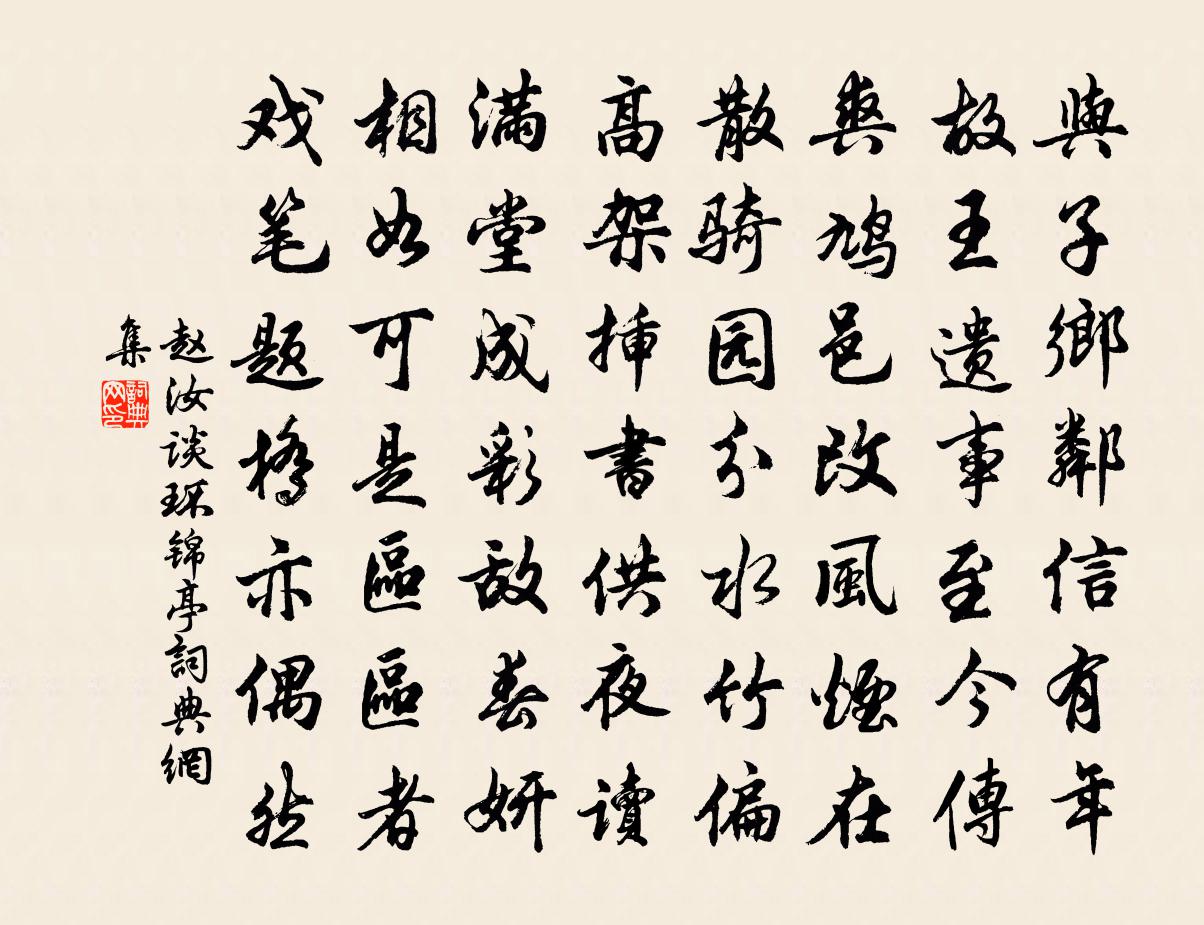 與子鄉鄰信有年
故王遗事至今傳
爽鸠邑改風煙在
散骑园分水竹偏
高架插書供夜讀
满堂成彩敌春妍
相如可是區區者
戏笔题橋亦偶然
赵汝谈环锦亭詞典網
集
詞典网印